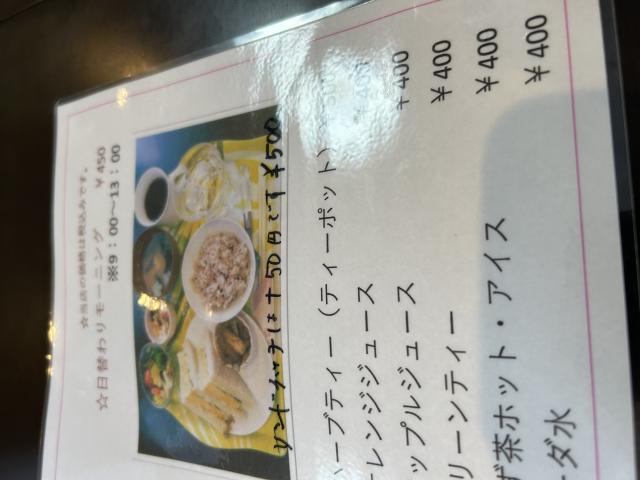 ☆当店の価格は税込みです。
☆日替わりモーニング ￥450
※9：00～13：00
サンドイッチは＋50円です￥500
ハーブティー（ティーポット）
オレンジジュース
ップルジュース ￥400
リーンティー ￥400
ず茶ホット・アイス ￥400
ーダ水 ￥400